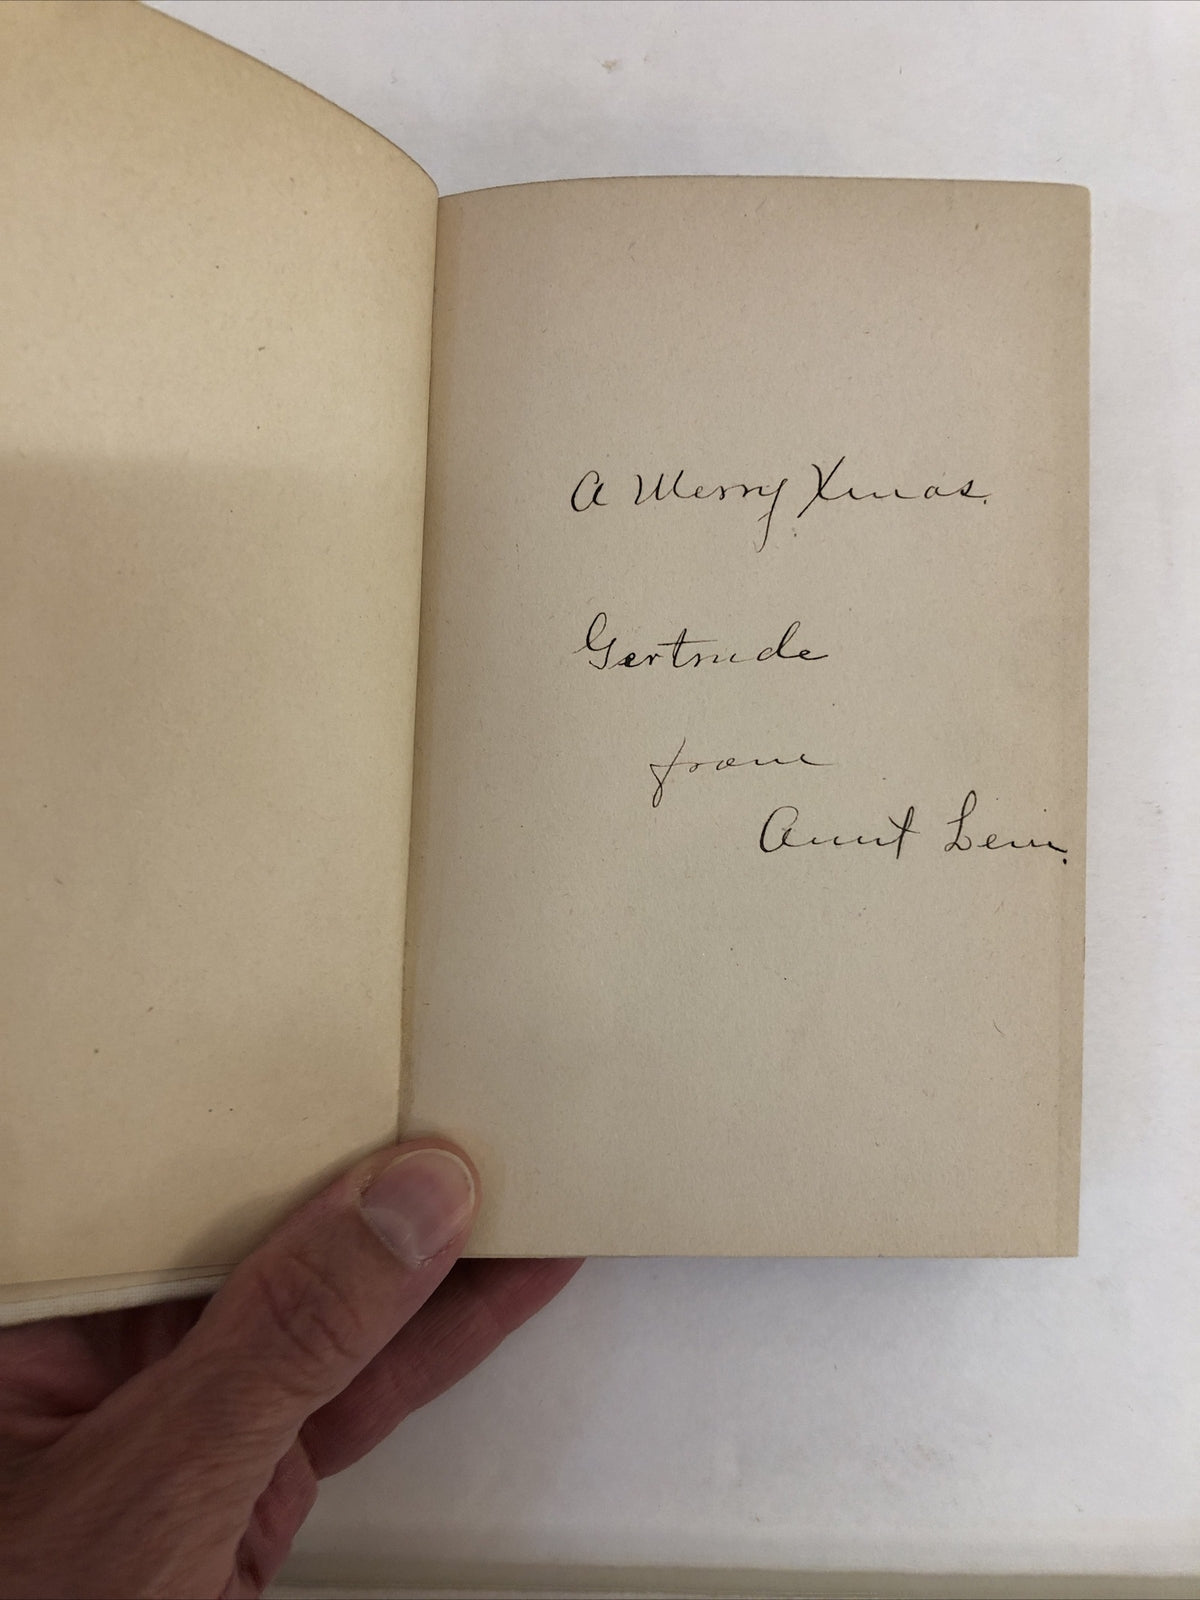 A Merry Xmas.
Gertrude
from
Aunt